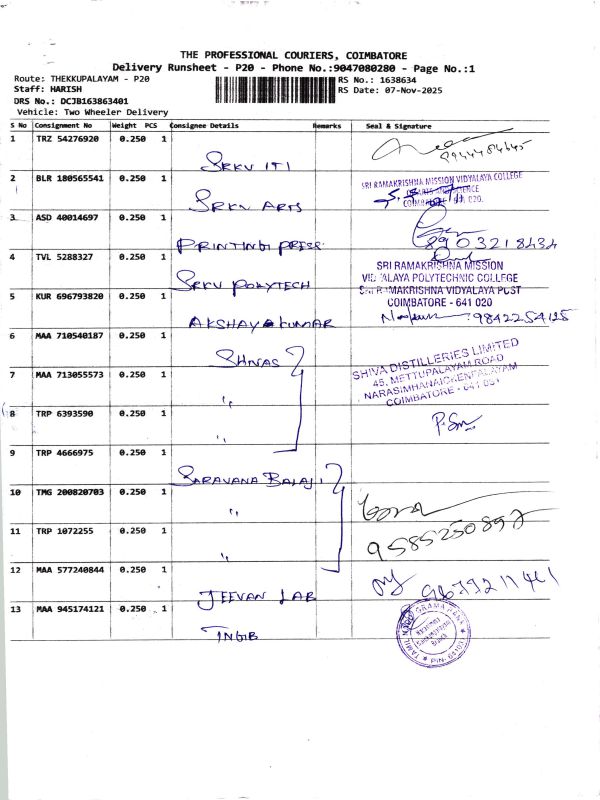 THE PROFESSIONAL COURIERS, COIMBATORE
Delivery Runsheet - P20 - Phone No.:9047080280 - Page No.:1
Route: THEKKUPALAYAM - P20
Staff: HARISH
RS No.: 1638634
DRS No.: DCJB163863401
RS Date: 07-Nov-2025
Vehicle: Two Wheeler Delivery
S No Consignment No Weight PCS Consignee Details Remarks Seal & Signature
1 TRZ 54276920 0.250 1 SRKV ITI
2 BLR 180565541 0.250 1 SRKV ARTS
SRI RAMAKRISHNA MISSION VIDYALAYA COLLEGE
COIMBATORE - 641 020.
3 ASD 40014697 0.250 1 PRINTING PRESS
8903218434
4 TVL 5288327 0.250 1 SRKV POLYTECH
SRI RAMAKRISHNA MISSION
VIDYALAYA POLYTECHNIC COLLEGE
SRI RAMAKRISHNA VIDYALAYA POST
COIMBATORE - 641 020
5 KUR 696793820 0.250 1 AKSHAYA KUMAR
6 MAA 710540187 0.250 1 SHIVAS
SHIVA DISTILLERIES LIMITED
45, METTUPALAYAM ROAD
NARASIMHANAICKENPALAYAM
COIMBATORE - 641 031
7 MAA 713055573 0.250 1 "
8 TRP 6393590 0.250 1 "
9 TRP 4666975 0.250 1 SARAVANA BALAJI
10 TMG 200820703 0.250 1 "
11 TRP 1072255 0.250 1 "
9585250897
12 MAA 577240844 0.250 1 JEEVAN LAB
13 MAA 945174121 0.250 1 TNGB